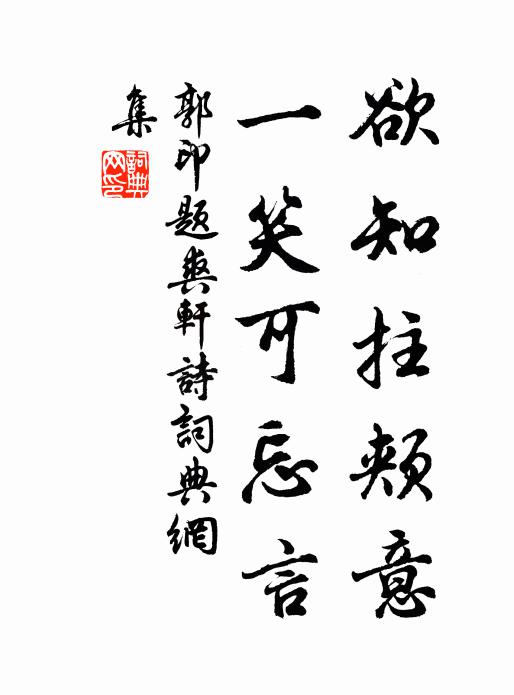 欲知拄頰意
一笑可忘言
郭印題爽軒詩詞典網
集
詞典網印